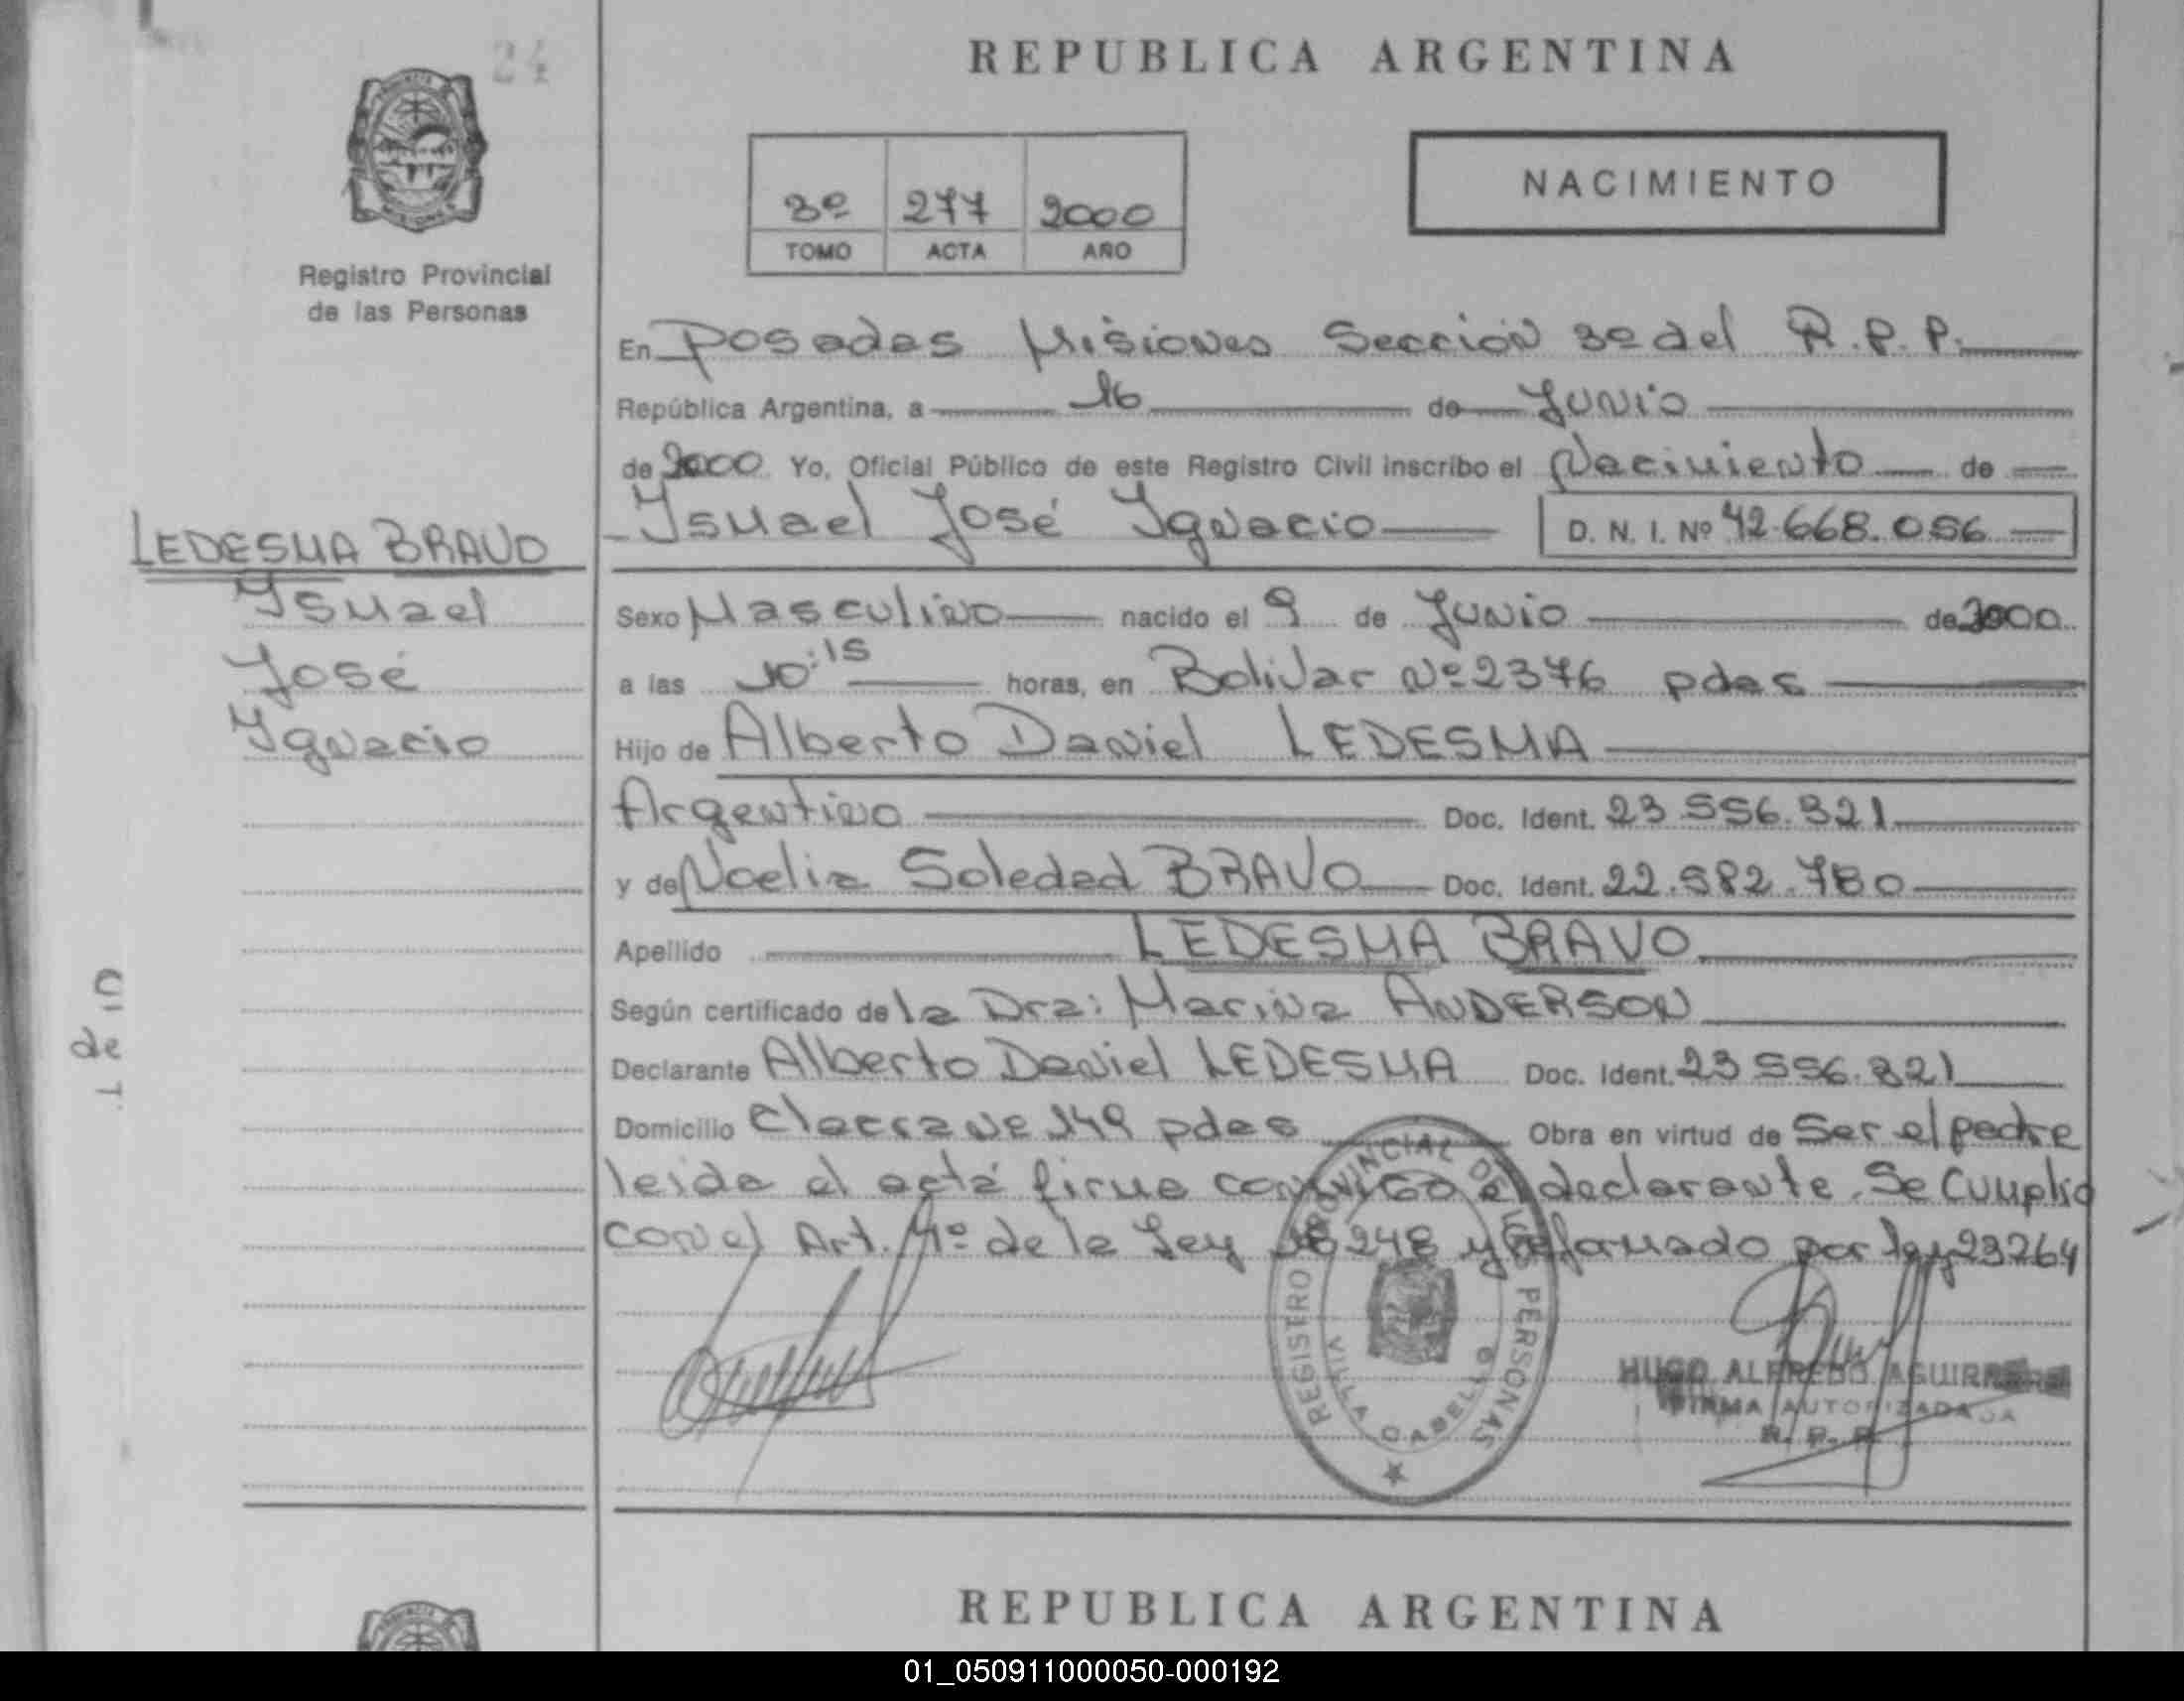 24
REPUBLICA ARGENTINA
3º 277 2000
TOMO ACTA AÑO
NACIMIENTO
Registro Provincial
de las Personas
En Posadas Misiones Sección 3º del R.P.P.
República Argentina, a 16 de Junio
de 2000 Yo, Oficial Público de este Registro Civil inscribo el Nacimiento de
Ismael José Ignacio D. N. I. Nº 42.668.056
LEDESMA BRAVO
Ismael
José
Ignacio
Sexo Masculino nacido el 9 de Junio de 2000
a las 10:15 horas, en Bolivar Nº 2376 pdas
Hijo de Alberto Daniel LEDESMA
Argentino Doc. Ident. 23.556.821
y de Noelia Soledad BRAVO Doc. Ident. 22.582.780
Apellido LEDESMA BRAVO
Según certificado de la Dra: Marina ANDERSON
Declarante Alberto Daniel LEDESMA Doc. Ident. 23 556.821
Domicilio pdas Obra en virtud de Ser el padre
leida el acta firma conmigo el declarante. Se Cumplió
con el Art. 4º de la Ley 18248 y Reformado por ley 23264
REGISTRO PROVINCIAL DE LAS PERSONAS
VILLA CABELLO
HUGO ALFREDO AGUIRRE
FIRMA AUTORIZADA
R. P. P.
REPUBLICA ARGENTINA
01_050911000050-000192